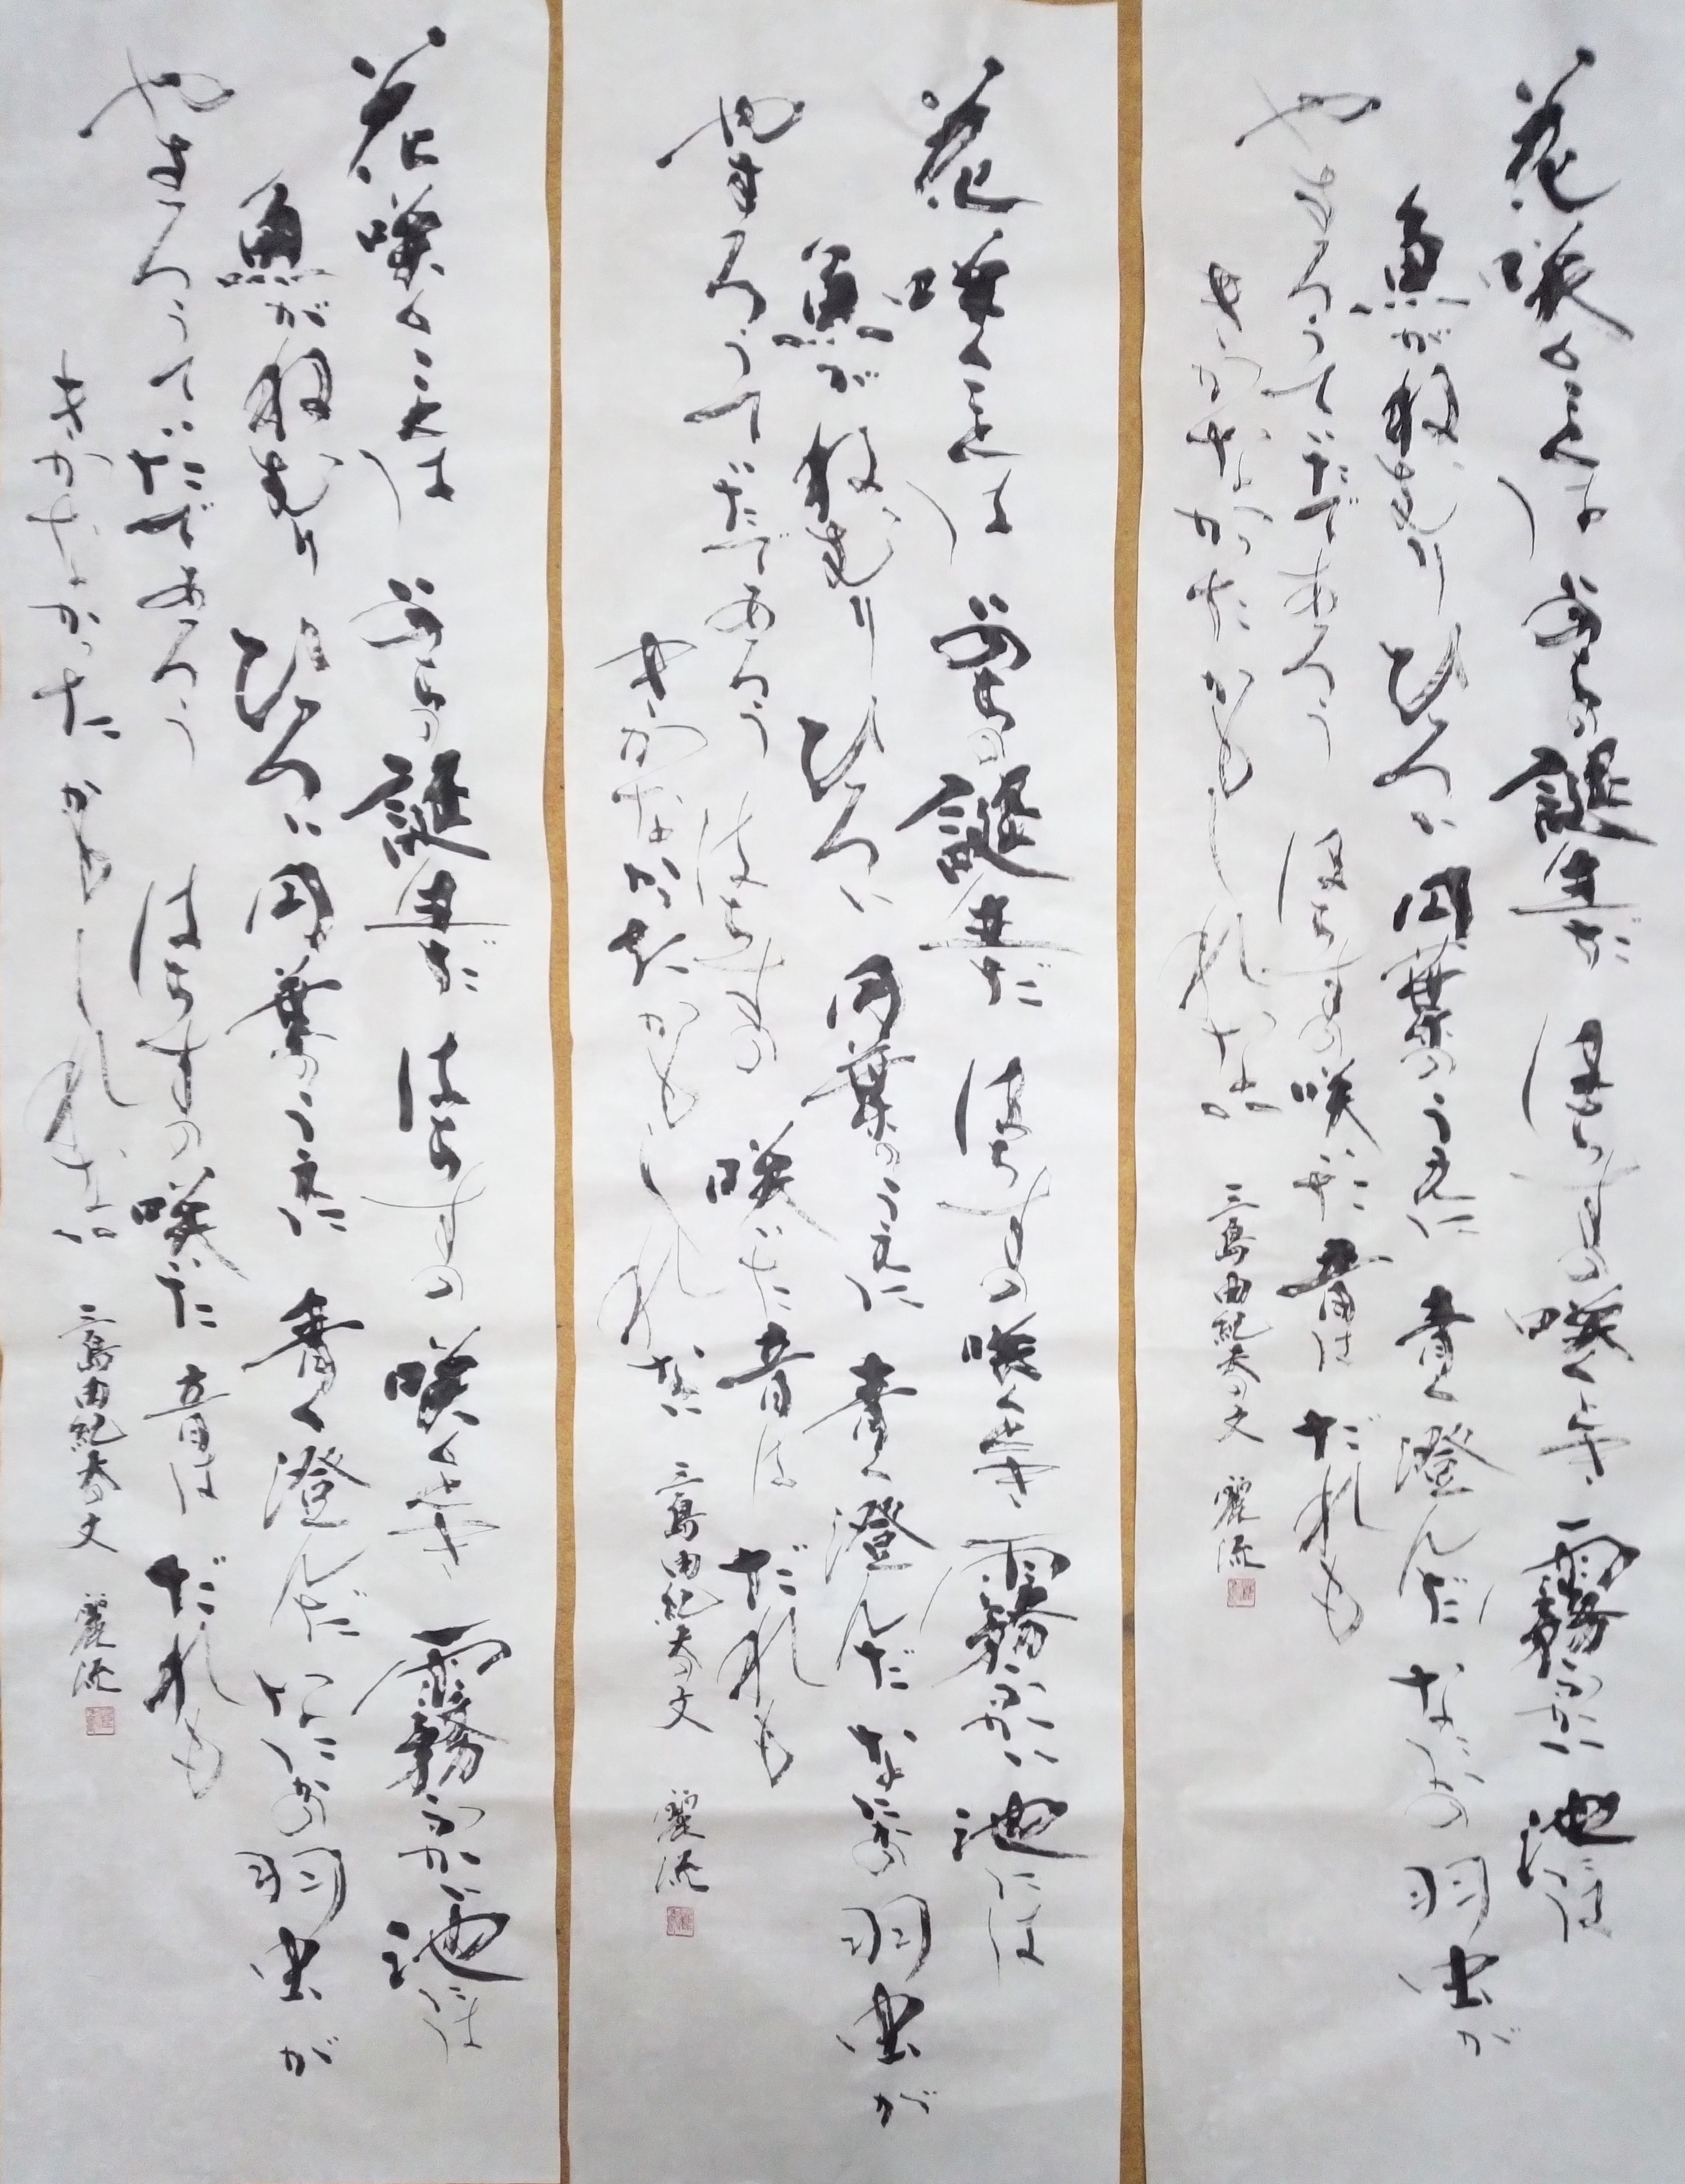 花咲くことは 命の誕生だ はちすの咲くとき 霧ふかい池には
魚がねむり ひろい円葉のうえに 青く澄んだ なにかの羽虫が
やすろうていたであろう はちすの咲いた音は だれも
きかなかったかもしれない 三島由紀夫の文 麗流
花咲くことは 命の誕生だ はちすの咲くとき 霧ふかい池には
魚がねむり ひろい円葉のうえに 青く澄んだ なにかの羽虫が
やすろうていたであろう はちすの 咲いた音は だれも
きかなかったかもしれない 三島由紀夫の文 麗流
花咲くことは 命の誕生だ はちすの咲くとき 霧ふかい池には
魚がねむり ひろい円葉のうえに 青く澄んだ なにかの羽虫が
やすろうていたであろう はちすの咲いた音は だれも
きかなかったかもしれない 三島由紀夫の文 麗流